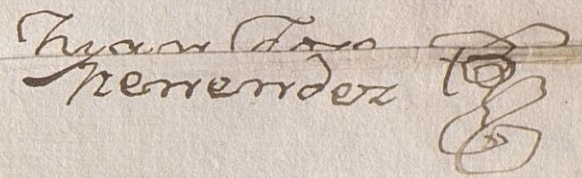 Juan Jos
Menendez